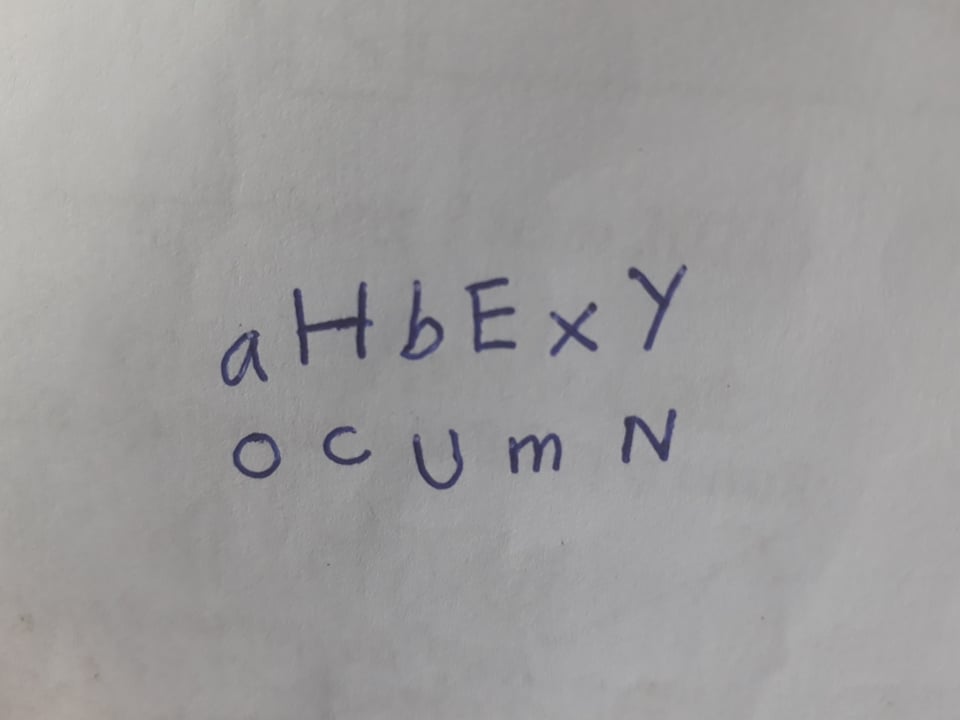 a H b E x Y
o c U m N